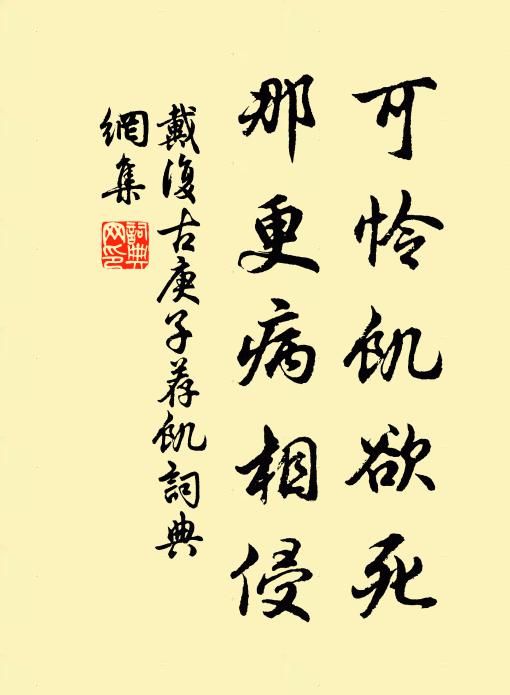 可怜飢欲死
那更病相侵
戴復古庚子荐飢詞典
網集
詞典
网印